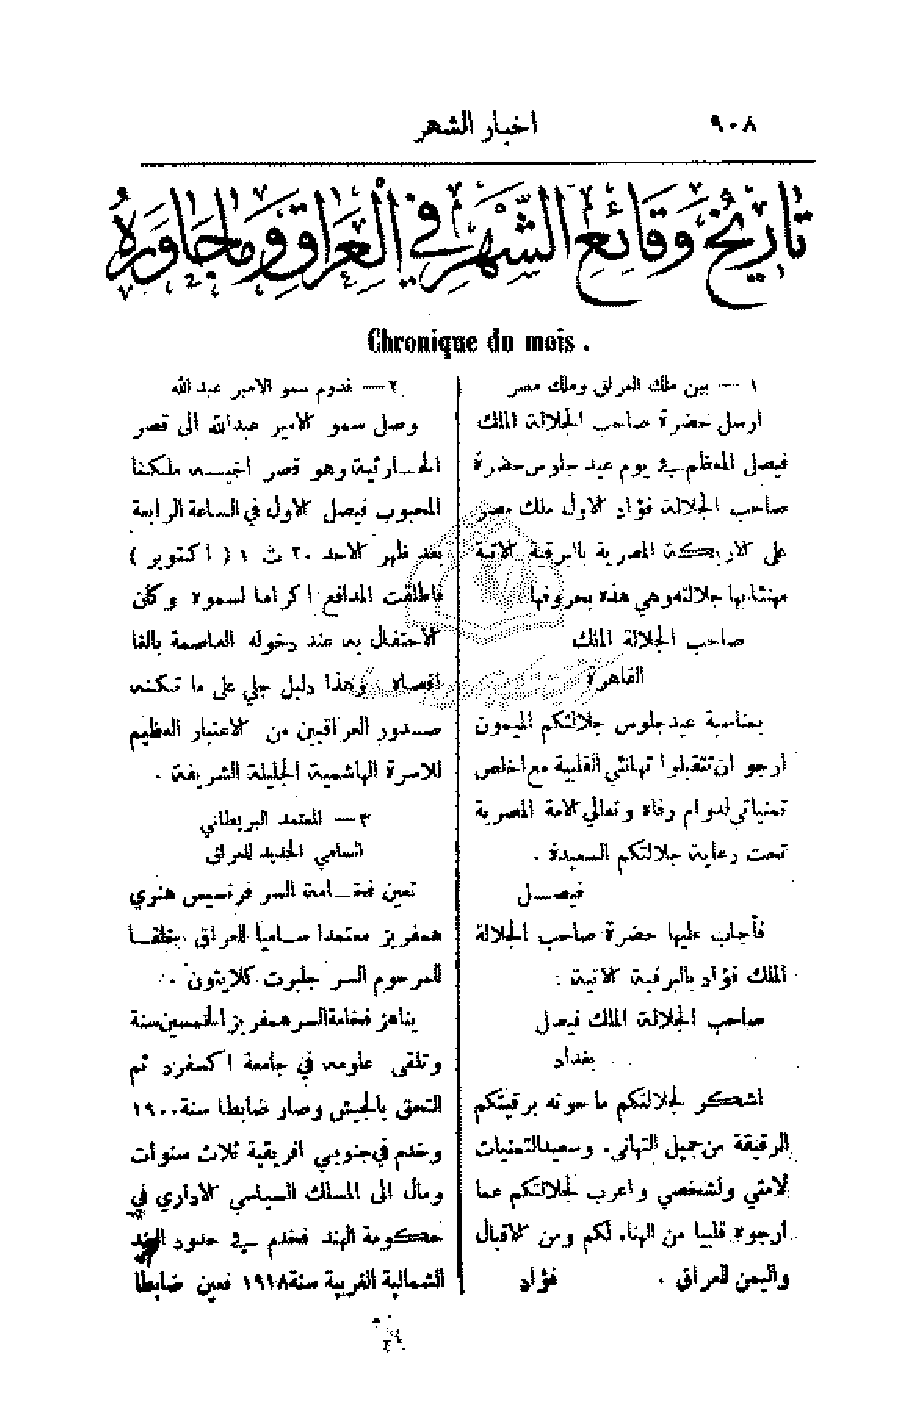 ٩٠٨
اخبار الشهر
تاريخ وقائع الشهر في العراق وما جاوره
Chronique du mois .
١ — بين ملك العراق وملك مصر
ارسل حضرة صاحب الجلالة الملك
فيصل المعظم في يوم عيد جلوس حضرة
صاحب الجلالة فؤاد الاول ملك مصر
على الاريكة المصرية بالبرقية الاتية
مهنئا بها جلالته وهي هذه بحروفها
صاحب الجلالة الملك
القاهرة
بمناسبة عيد جلوس جلالتكم الميمون
ارجو ان تتقبلوا تهانئي القلبية مع اخلص
تمنياتي لدوام رفاه وتعالي الامة المصرية
تحت رعاية جلالتكم السعيدة .
فيصل
فأجاب عليها حضرة صاحب الجلالة
الملك فؤاد بالبرقية الاتية :
صاحب الجلالة الملك فيصل
بغداد
اشكر لجلالتكم ما حوته برقيتكم
الرقيقة من جميل التهاني. وسعيد التمنيات
لامتي ولشخصي واعرب لجلالتكم عما
ارجوه قلبيا من الهناء لكم ومن الاقبال
واليمن للعراق . فؤاد
٢ — قدوم سمو الامير عبد الله
وصل سمو الامير عبدالله الى قصر
الحارثية وهو قصر اخيه ملكنا
المحبوب فيصل الاول في الساعة الرابعة
بعد ظهر الاحد ٢٠ ت ١ ( اكتوبر )
فاطلقت المدافع اكراما لسموه وكان
الاحتفال به عند دخوله العاصمة بالغا
اقصاه وهذا دليل جلي على ما تكنه
صدور العراقيين من الاعتبار العظيم
للاسرة الهاشمية الجليلة الشريفة .
٣ — المعتمد البريطاني
السامي الجديد للعراق
تعين فخامة السر فرنسيس هنري
همفريز معتمدا ساميا للعراق بخلفا
للمرحوم السر جلبرت كلايتون .
يناهز فخامة السر همفريز الخمسين سنة
وتلقى علومه في جامعة اكسفرد ثم
التحق بالجيش وصار ضابطا سنة ١٩٠٠
وخدم في جنوبي افريقية ثلاث سنوات
ومال الى المسلك السياسي الاداري في
حكومة الهند فخدم في حدود الهند
الشمالية الغربية سنة ١٩١٨ فعين ضابطا